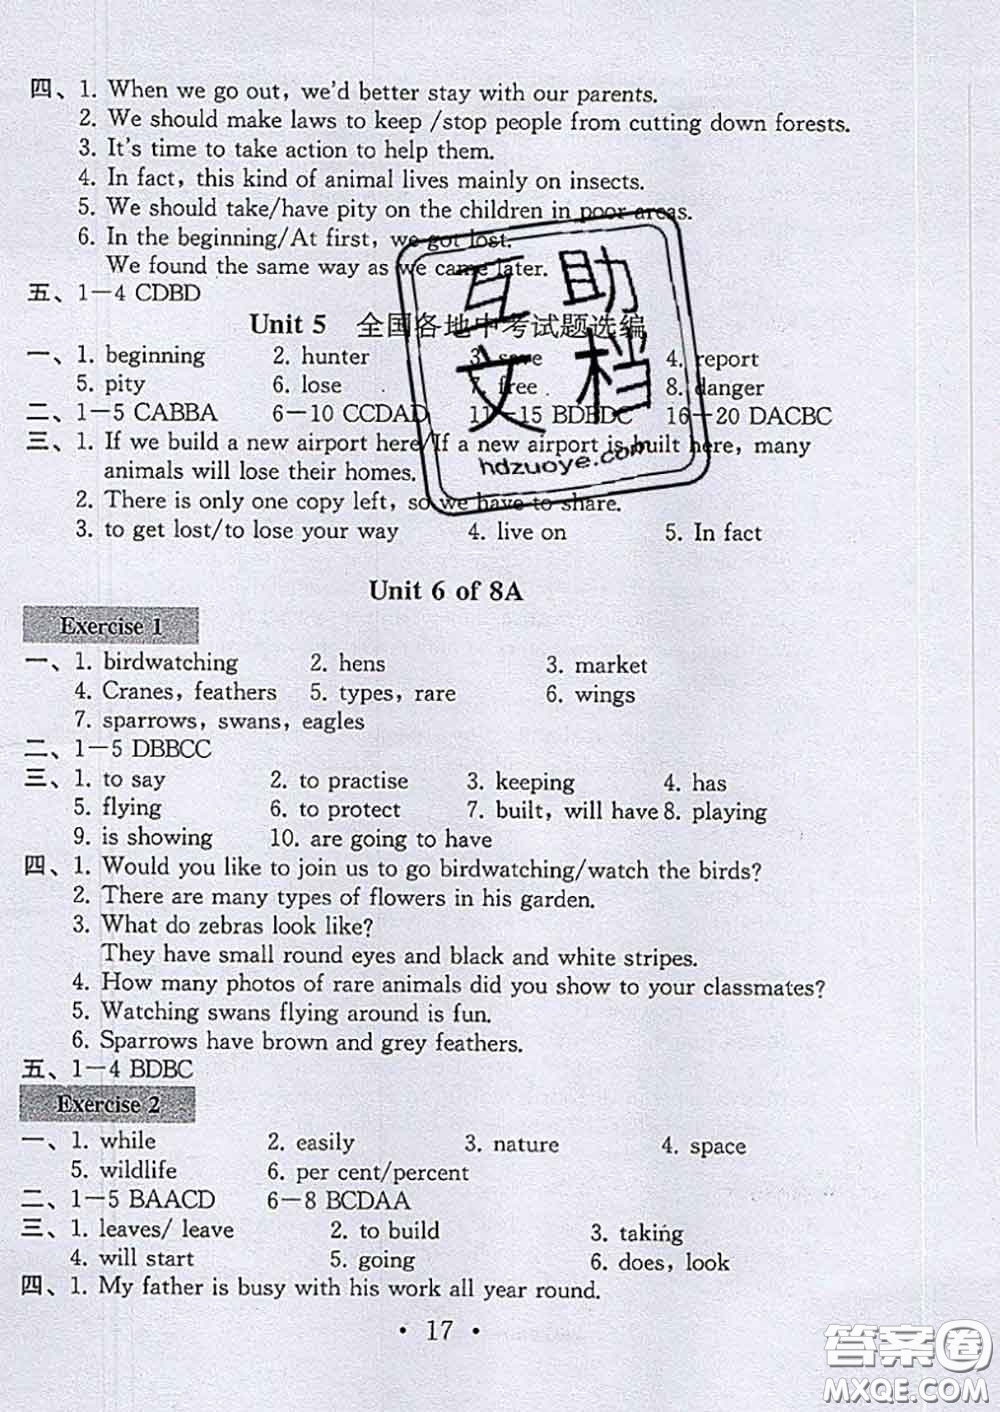 四、1. When we go out, we'd better stay with our parents.
2. We should make laws to keep /stop people from cutting down forests.
3. It's time to take action to help them.
4. In fact, this kind of animal lives mainly on insects.
5. We should take/have pity on the children in poor areas.
6. In the beginning/At first, we got lost.
We found the same way as we came later.
五、1－4 CDBD
Unit 5 全国各地中考试题选编
一、1. beginning 2. hunter 3. save 4. report
5. pity 6. lose 7. free 8. danger
二、1－5 CABBA 6－10 CCDAD 11－15 BDBDC 16－20 DACBC
三、1. If we build a new airport here/If a new airport is built here, many
animals will lose their homes.
2. There is only one copy left, so we have to share.
3. to get lost/to lose your way 4. live on 5. In fact
互助
文档
hdzuoye.com
Unit 6 of 8A
Exercise 1
一、1. birdwatching 2. hens 3. market
4. Cranes, feathers 5. types, rare 6. wings
7. sparrows, swans, eagles
二、1－5 DBBCC
三、1. to say 2. to practise 3. keeping 4. has
5. flying 6. to protect 7. built, will have 8. playing
9. is showing 10. are going to have
四、1. Would you like to join us to go birdwatching/watch the birds?
2. There are many types of flowers in his garden.
3. What do zebras look like?
They have small round eyes and black and white stripes.
4. How many photos of rare animals did you show to your classmates?
5. Watching swans flying around is fun.
6. Sparrows have brown and grey feathers.
五、1－4 BDBC
Exercise 2
一、1. while 2. easily 3. nature 4. space
5. wildlife 6. per cent/percent
二、1－5 BAACD 6－8 BCDAA
三、1. leaves/ leave 2. to build 3. taking
4. will start 5. going 6. does, look
四、1. My father is busy with his work all year round.
• 17 •
答案圈
MXQE.COM